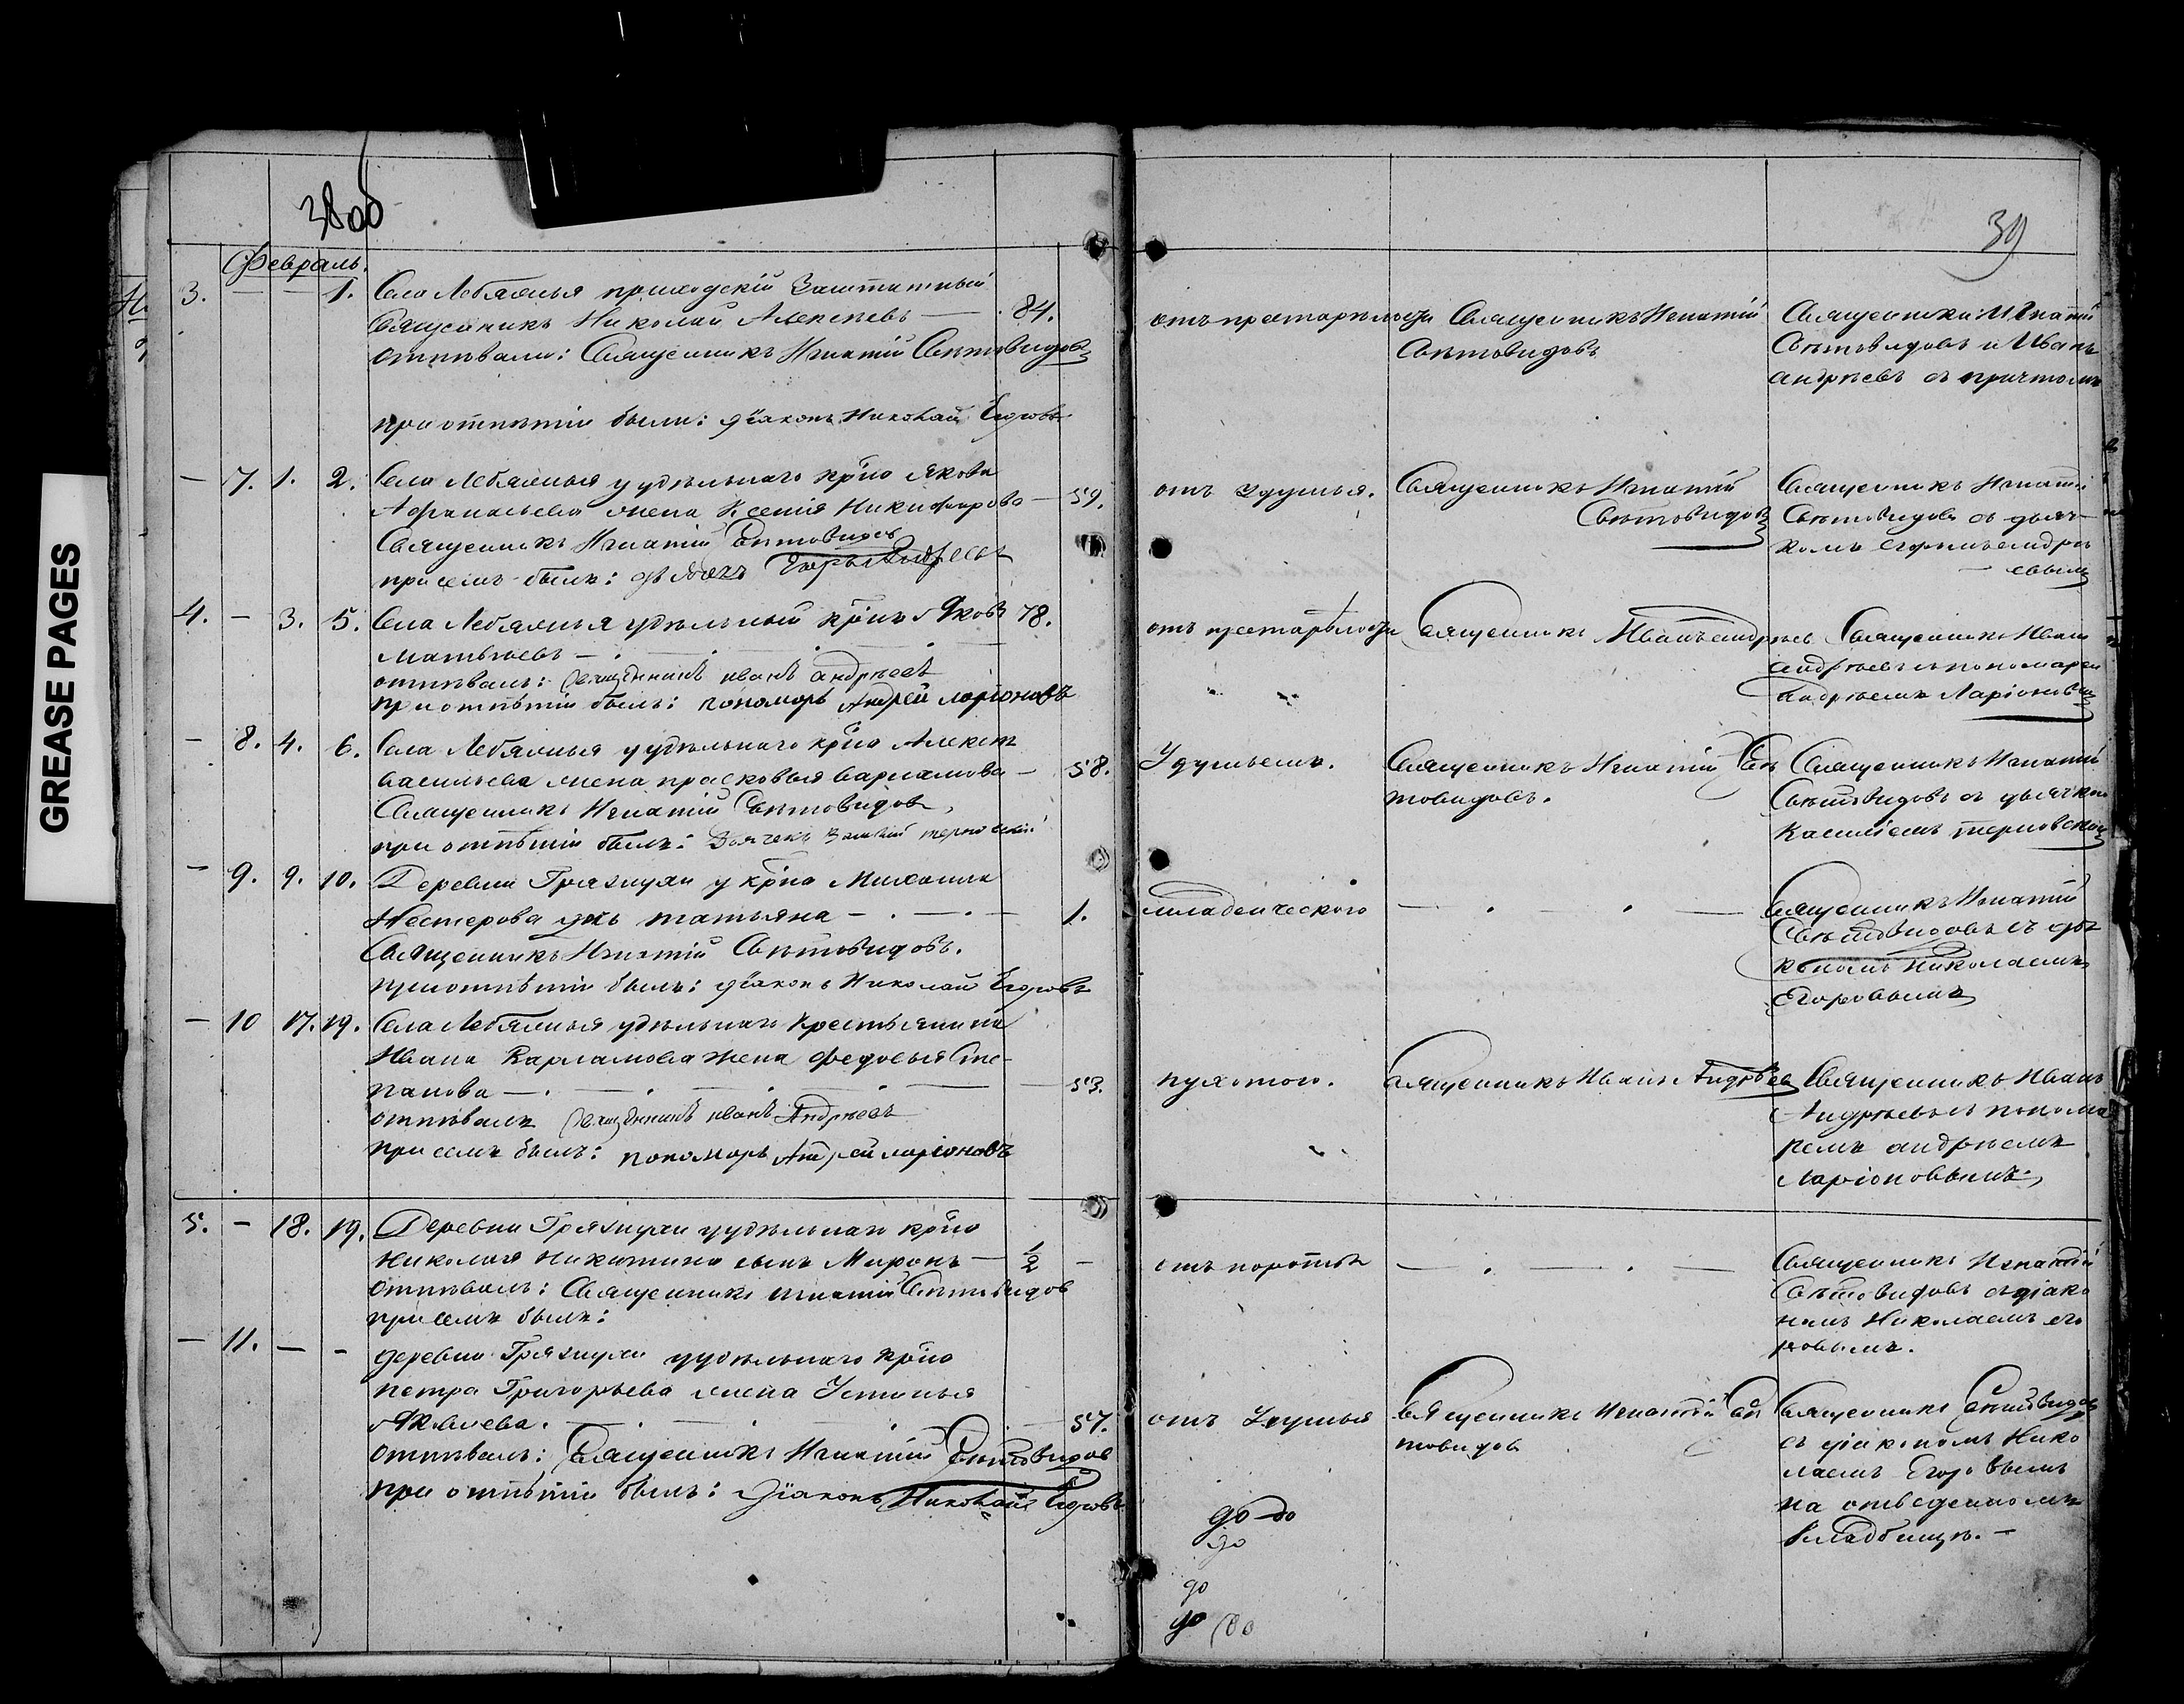 38об
39
GREASE PAGES
Февраль.
3. — — 1. Села Лебяжья приходскій Заштатный
Священникъ Николай Алексѣевъ — 84.
Отпѣвали: Священникъ Игнатій Свѣтовидовъ
при отпѣтіи были: діаконъ Николай Егоровъ
отъ престарѣлости
Священникъ Игнатій
Свѣтовидовъ
Священники: Игнатій
Свѣтовидовъ и Иванъ
Андрѣевъ съ причтомъ
— 7. 1. 2. Села Лебяжья удѣльнаго крн҃а Якова
Афанасьева жена Ксенія Никифорова — 59.
Священникъ Игнатій Свѣтовидовъ
при семъ былъ: дьячокъ
отъ удушья.
Священникъ Игнатій
Свѣтовидовъ
Священникъ Игнатій
Свѣтовидовъ съ дьяч-
комъ
4. — 3. 5. Села Лебяжья удѣльный крн҃ъ Яковъ 78.
Матвѣевъ —
отпѣвалъ: Священникъ иванъ андрѣевъ
при отпѣтіи былъ: пономарь Андрей Ларіоновъ
отъ престарѣлости
Священникъ Иванъ Андрѣевъ
Священникъ Иванъ
Андрѣевъ съ пономаремъ
Андрѣемъ Ларіоновымъ
— 8. 4. 6. Села Лебяжья удѣльнаго крн҃а Алексѣя
Васильева жена прасковья Варламова — 58.
Священникъ Игнатій Свѣтовидовъ,
при отпѣтіи былъ: Дьячекъ Василій терновскій
Удушьемъ.
Священникъ Игнатій Свѣ
товидовъ.
Священникъ Игнатій
Свѣтовидовъ съ дьячкомъ
Василіемъ терновскимъ
— 9. 9. 10. Деревни Грязнухи у крн҃а Михаила
Нестерова дочь татьяна — 1.
Священникъ Игнатій Свѣтовидовъ.
при отпѣтіи былъ: діаконъ Николай Егоровъ
младенческого
Священникъ Игнатій
Свѣтовидовъ съ діа
кономъ Николаемъ
Егоровымъ
— 10 17. 19. Села Лебяжья удѣльнаго крестьянина
Ивана Варламова жена Федосья Сте-
панова — 53.
отпѣвалъ Священникъ иванъ Андрѣевъ
при семъ былъ: пономарь Андрей ларіоновъ
пухотою.
Священникъ Иванъ Андрѣевъ
Священникъ Иванъ
Андрѣевъ съ понома
ремъ андрѣемъ
Ларіоновымъ
5. — 18. 19. Деревни Грязнухи удѣльнаго крн҃а
Николая Никитина сынъ Миронъ — 1/2 —
Отпѣвалъ: Священникъ Игнатій Свѣтовидовъ
при семъ былъ:
Священникъ Игнатій
Свѣтовидовъ съ діако
номъ Николаемъ Его
ровымъ.
— 11. — - деревни Грязнухи удѣльнаго крн҃а
Петра Григорьева жена Устинья
Яковлева. — 57.
Отпѣвалъ: Священникъ Игнатій Свѣтовидовъ
при отпѣтіи былъ: Діаконъ Николай Егоровъ
отъ Удушья
Священникъ Игнатій Свѣ
товидовъ
Священникъ Свѣтовидовъ
съ діакономъ Нико
лаемъ Егоровымъ
на отведенномъ
кладбищѣ. —
до до
до
до
до до